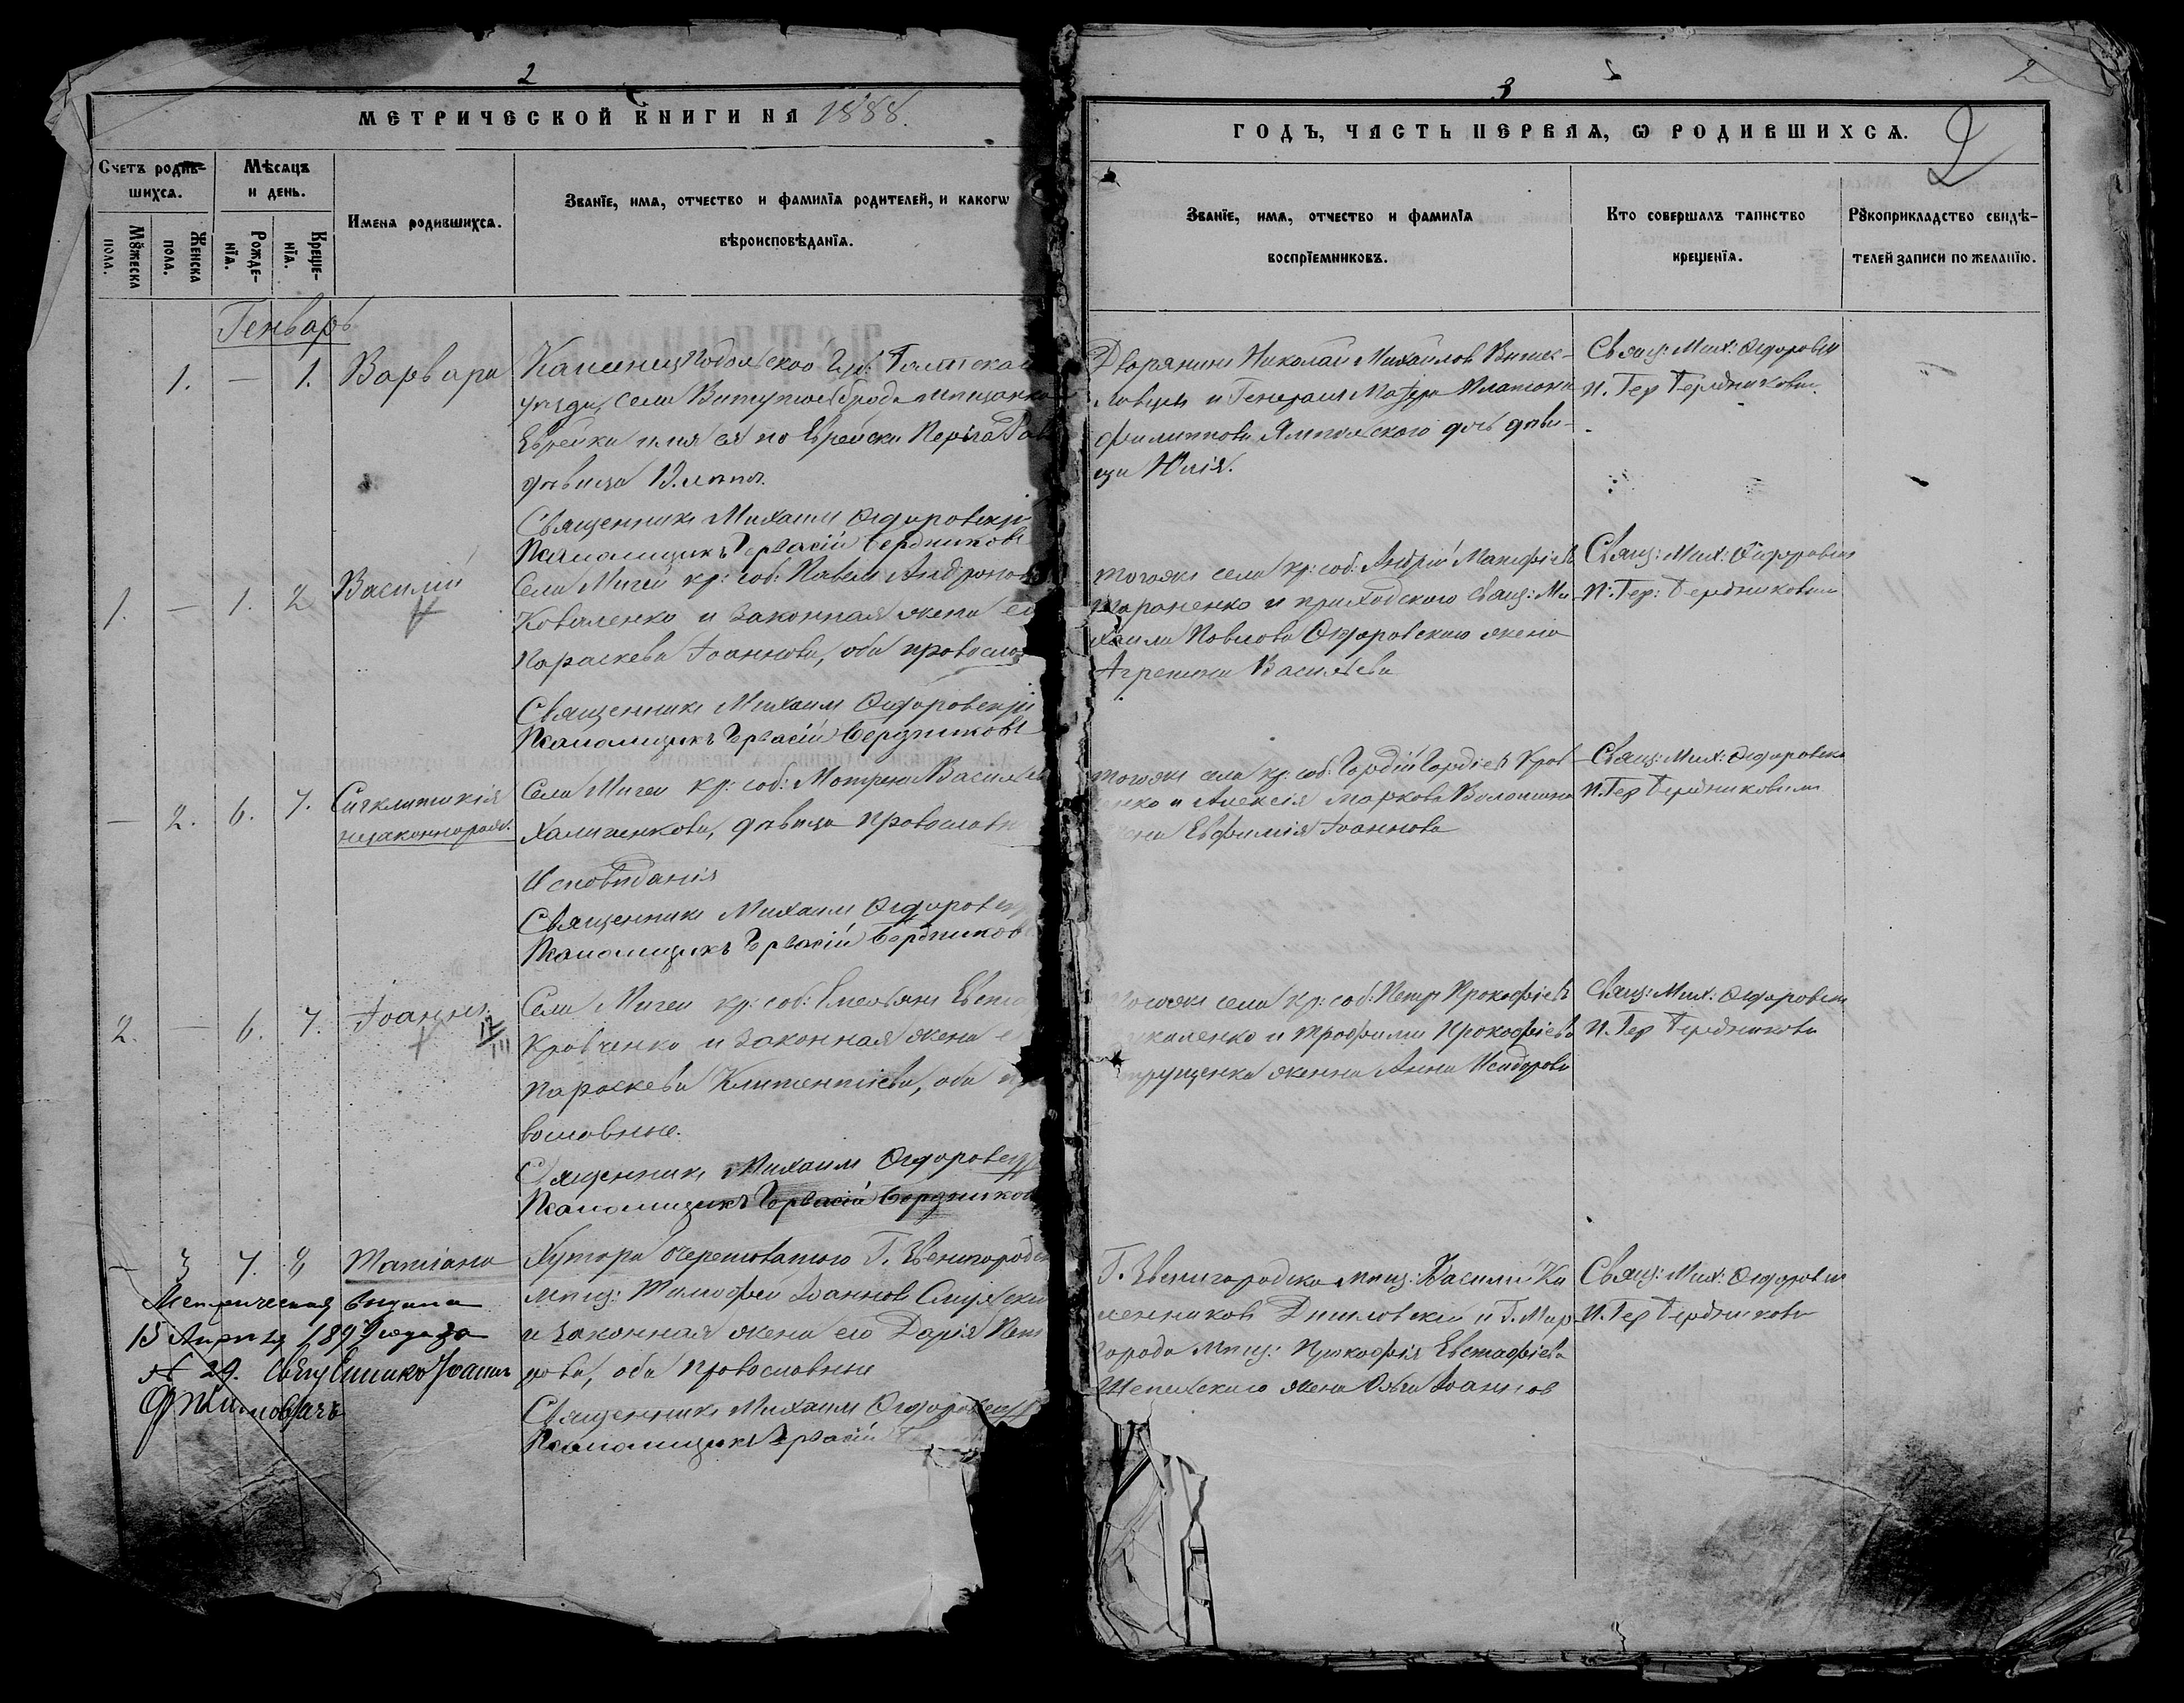 2
МЕТРИЧЕСКОЙ КНИГИ НА 1888.
Счетъ родив-
шихся.
Мѣсяцъ
и день.
Мꙋжеска
пола.
Женска
пола.
Рожде-
нїя.
Креще-
нїя.
Имена родившихся.
Званїе, имя, отчество и фамилїя родителей, и какогѡ
вѣроисповѣданїя.
Генварь
1. — 1. Варвара
Каменецъ Подольской Губ: Балтской
уѣзда, села
Еврейка имя ея по Еврейски
дѣвица 13. лѣтъ.
Священникъ Михаилъ Ѳедоровскій
Паламащикъ Гервасій Бердников
1. — 1. 2 Василій
Села Мигеи кр: соб: Павелъ Андронов
Коваленко и законная жена ег
Параскева Іоаннова, оба православ
Священникъ Михаилъ Ѳедоровскій
Паламащикъ Гервасій Бердников
— 2. 6. 7. Сигклитикія
незаконнорож.
Села Мигеи кр: соб: Мотрена Васильев
Халиченкова, дѣвица православн
Исповѣданія
Священникъ Михаилъ Ѳедоровск
Паламащикъ Гервасій Бердников
2. — 6. 7. Іоаннъ
17
III
Села Мигеи кр: соб: Емельянъ Евста
Кравченко и законная жена е
Параскева Климентіева, оба пр
вославные.
Священникъ Михаилъ Ѳедоровск
Паламащикъ Гервасій Бердников
— 3 7. 8 Татіана
Хутора Очеретоватого Г. Звенигородск
мѣщ: Тимофей Іоаннов
и законная жена его Дарія Пет
рова, оба православные
Священникъ Михаилъ Ѳедоровск
Паламащикъ Гервасій
Метрическая выдана
15 Апреля 1899 года за
№ 29. Священникъ Іоаннъ
3
2
ГОДЪ, ЧАСТЬ ПЕРВАЯ, Ѡ РОДИВШИХСЯ.
Званїе, имя, отчество и фамилїя
воспрїемниковъ.
Кто совершалъ таинство
крещенїя.
Рꙋкоприкладство свидѣ-
телей записи по желанїю.
Дворянинъ Николай Михайловъ
и Генералъ Маіора Платона
Филиппова Ямпольского дочь дѣви-
ца Юлія.
Свящ: Мих: Ѳедоровск
П. Гер Бердниковъ
тогожъ села кр: соб: Андрей
Тараненко и приходского свящ: Ми-
хаила Павлова Ѳедоровскаго жена
Агрепина Васильева
Свящ: Мих: Ѳедоровск
П. Гер: Бердниковъ
тогожъ села кр: соб: Гордій Гордіевъ Крав-
енко и Алексія Маркова Волошина
жена Евфимія Іоаннова
Свящ: Мих: Ѳедоровск
П. Гер Бердниковъ
тогожъ села кр: соб: Петръ Прокофіевъ
и Трофима Прокофіева
жена Анна Исидорова
Свящ: Мих: Ѳедоровск
П. Гер Бердников
Г. Звенигородка мѣщ: Василій
и Г. Мир-
города мѣщ: Прокофія Евстафіева
жена Іоаннов
Свящ: Мих: Ѳедоровск
П. Гер Бердников